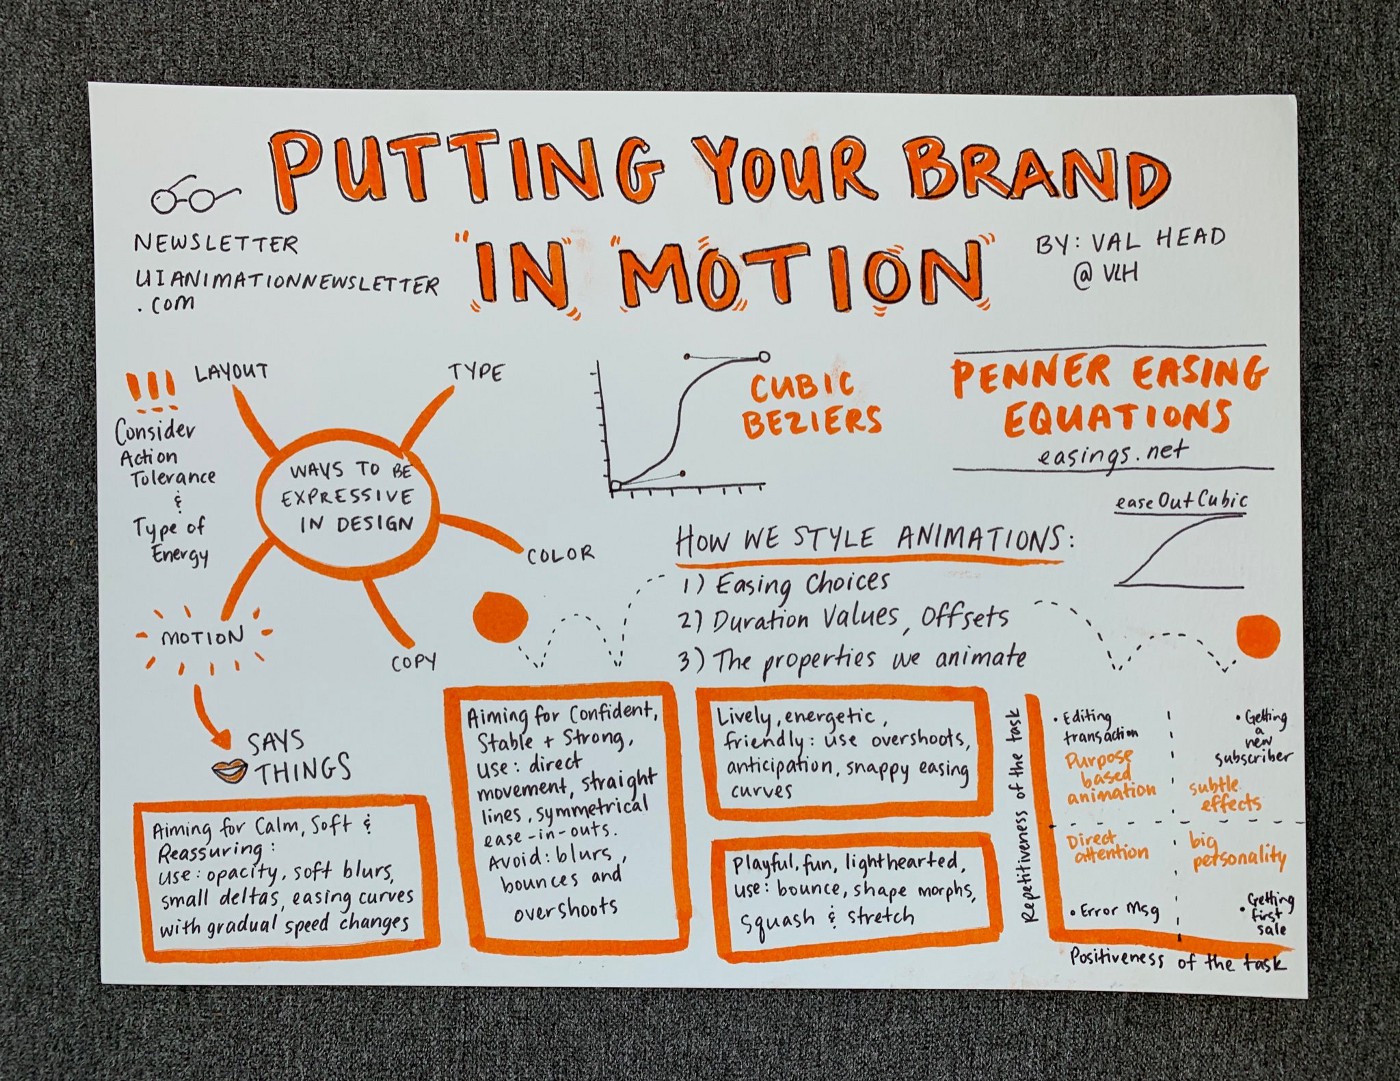 PUTTING YOUR BRAND
"IN" "MOTION"
NEWSLETTER
UIANIMATIONNEWSLETTER
.COM
BY: VAL HEAD
@VLH
!!!
Consider
Action
Tolerance
&
Type of
Energy
LAYOUT
TYPE
WAYS TO BE
EXPRESSIVE
IN DESIGN
COLOR
COPY
MOTION
SAYS
THINGS
CUBIC
BEZIERS
PENNER EASING
EQUATIONS
easings.net
easeOutCubic
HOW WE STYLE ANIMATIONS:
1) Easing Choices
2) Duration Values, Offsets
3) The properties we animate
Aiming for Calm, Soft &
Reassuring:
use: opacity, soft blurs,
small deltas, easing curves
with gradual speed changes
Aiming for Confident,
Stable + Strong,
use: direct
movement, straight
lines, symmetrical
ease-in-outs.
Avoid: blurs,
bounces and
overshoots
Lively, energetic,
friendly: use overshoots,
anticipation, snappy easing
curves
Playful, fun, lighthearted,
use: bounce, shape morphs,
Squash & stretch
Repetitiveness of the task
• Editing
transaction
Purpose
based
animation
• Getting
a
new
subscriber
subtle
effects
Direct
attention
• Error Msg
big
personality
• Getting
first
sale
Positiveness of the task